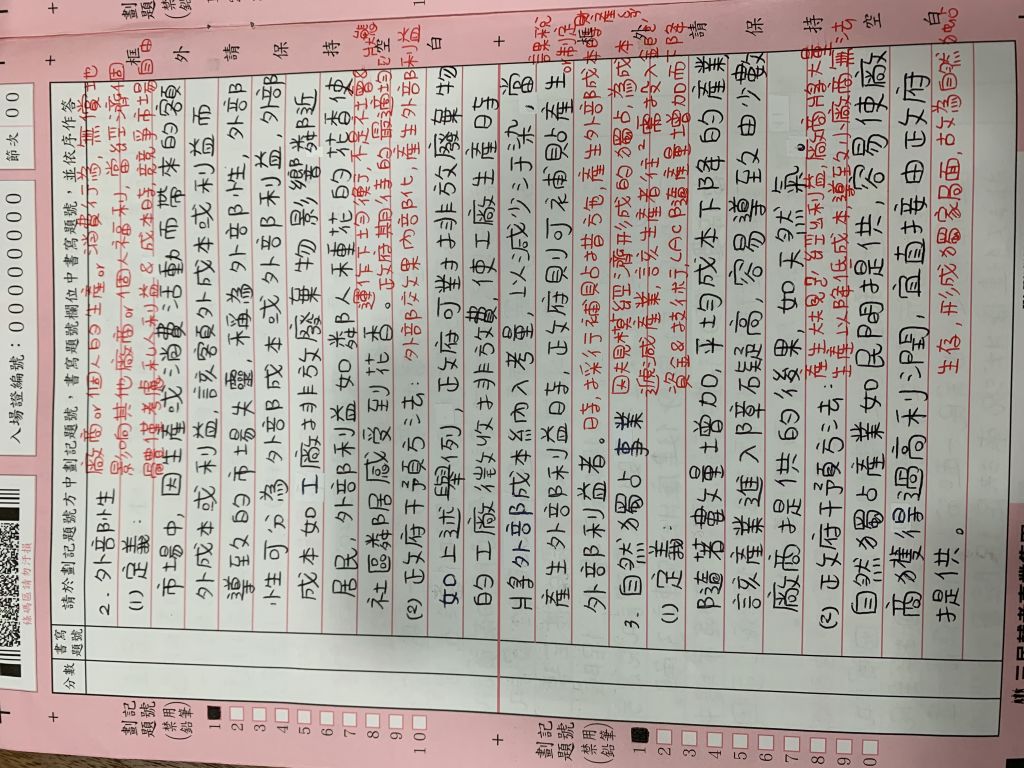 入場證編號：00000000
節次 00
條碼區請勿汙損
分數
書寫題號
請於劃記題號方中劃記題號，書寫題號欄位中書寫題號，並依序作答
劃記題號
(禁用鉛筆)
1
2
3
4
5
6
7
8
9
10
框 外 請 保 持 空 白
2. 外部性
廠商or個人的生產or消費行為，無償性地
影響其他廠商or個人福利，當經濟個
(1) 定義：
體僅考慮私人利益&成本時，競爭市場自由
市場中，因生產或消費活動而帶來的額
外成本或利益，該客額外成本或利益而
導致的市場失靈，稱為外部性，外部
性可分為外部成本或外部利益，外部
成本如工廠排放廢棄物影響鄰近
居民，外部利益如鄰人種花的花香使
運作下
社區鄰居感受到花香。
政府期待的
(2) 政府干預方法：
外部效果內部化，產生外部利益
如上述舉例，政府可對排放廢棄物
的工廠徵收排放費，使工廠生產時
將外部成本納入考量，以減少汙染，當
產生外部利益時，政府則可補貼產生
外部利益者。
時，採行補貼措施，產生外部成本時
課稅
3. 自然獨占事業
因規模經濟形成的獨占，為成本
遞減產業，該
生產者往
需投入龐
(1) 定義：
資金&技術，LAC隨產量增加而下降
隨著數量增加，平均成本下降的產業
該產業進入障礙高，容易導致由少數
廠商提供的後果，如天然氣。
產生大規
經
利益，廠商將大量
(2) 政府干預方法：
生產以降低成本，導致小廠商無法
自然獨占產業如民間提供，容易使廠
商獲得過高利潤，宜直接由政府
提供。
生存，形成獨家局面，故為自然獨占
劃記題號
(禁用鉛筆)
1
2
3
4
5
6
7
8
9
10
框 外 請 保 持 空 白